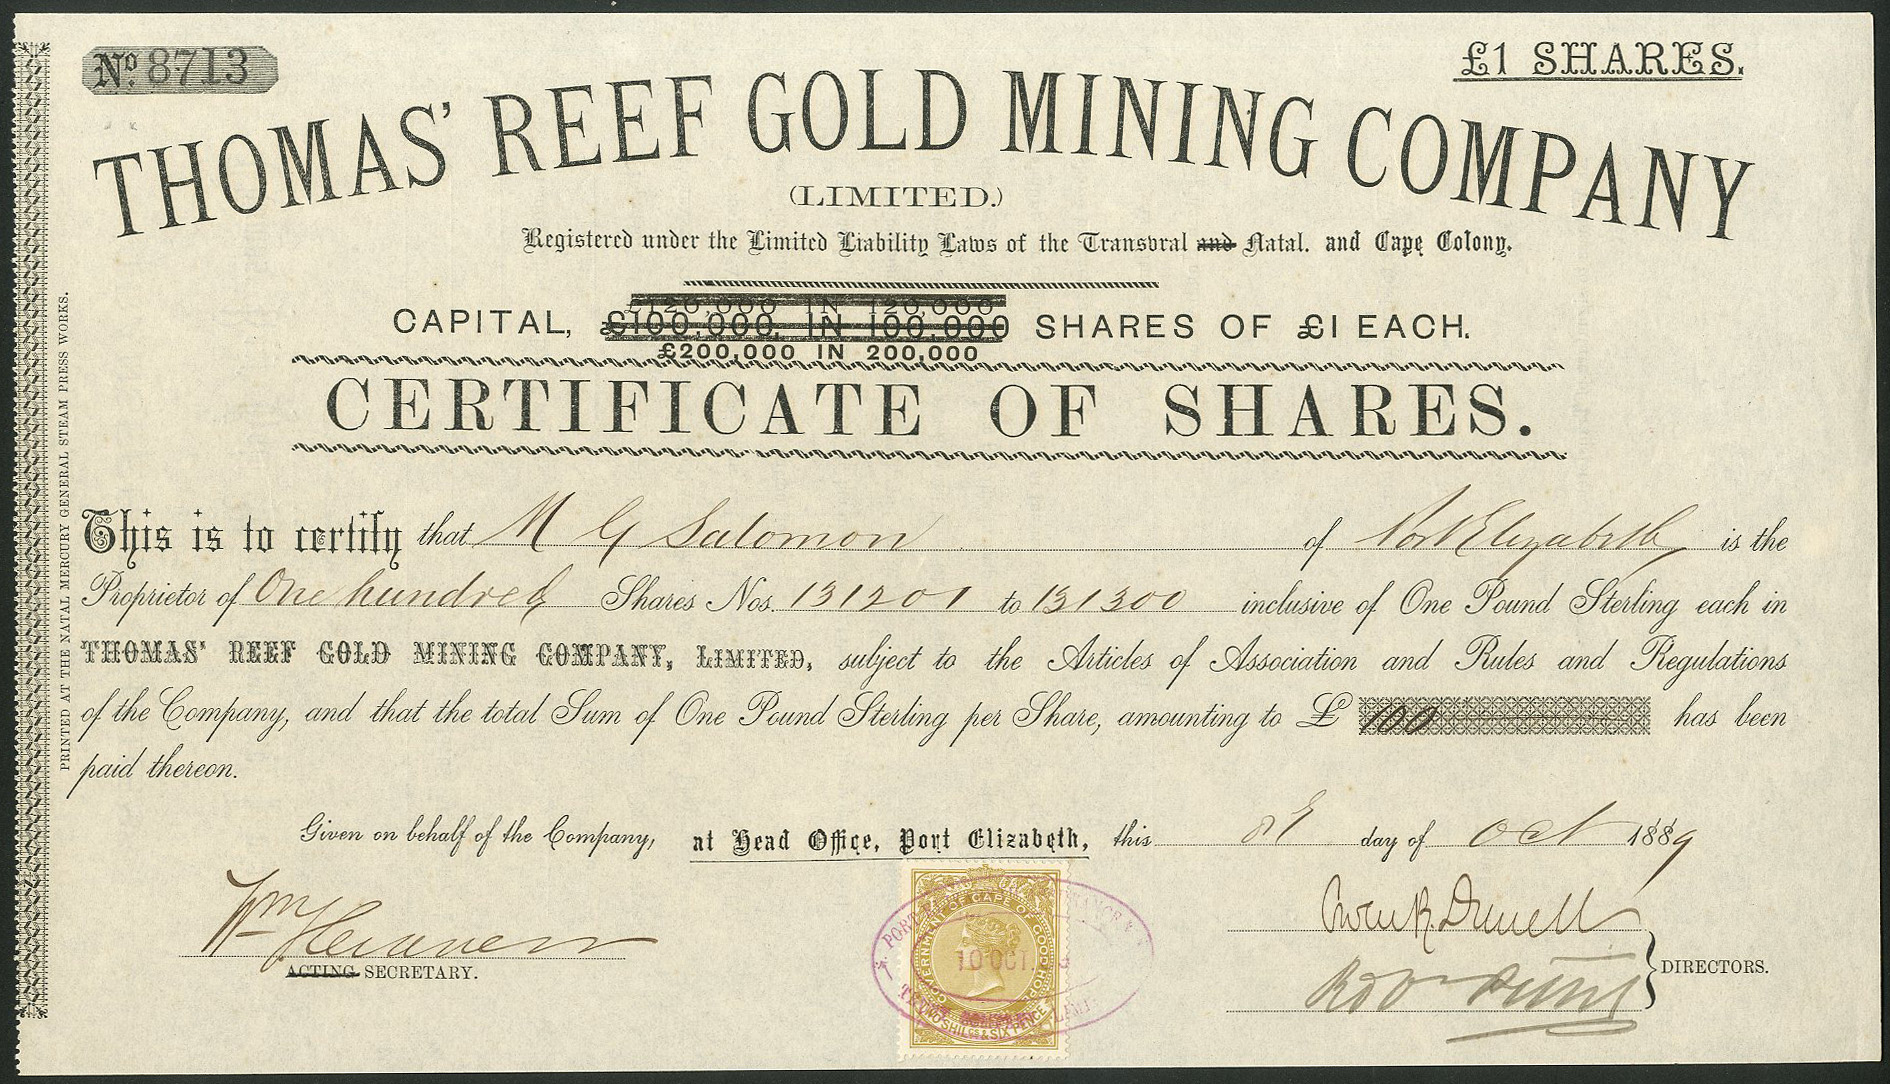 No. 8713
£1 SHARES.
THOMAS' REEF GOLD MINING COMPANY
(LIMITED.)
Registered under the Limited Liability Laws of the Transvral and Natal. and Cape Colony.
£120,000 IN 120,000
CAPITAL, £100,000. IN 100,000 SHARES OF £1 EACH.
£200,000 IN 200,000
CERTIFICATE OF SHARES.
This is to certify that M G Salomon of Port Elizabeth is the
Proprietor of One hundred Shares Nos. 131201 to 131300 inclusive of One Pound Sterling each in
THOMAS' REEF GOLD MINING COMPANY, LIMITED, subject to the Articles of Association and Rules and Regulations
of the Company, and that the total Sum of One Pound Sterling per Share, amounting to £ 100 has been
paid thereon.
Given on behalf of the Company, at Head Office, Port Elizabeth, this 8th day of Oct 1889
ACTING SECRETARY.
DIRECTORS.
GOVERNMENT OF CAPE OF GOOD HOPE
TWO SHILGS & SIX PENCE
10 OCT.
PRINTED AT THE NATAL MERCURY GENERAL STEAM PRESS WORKS.